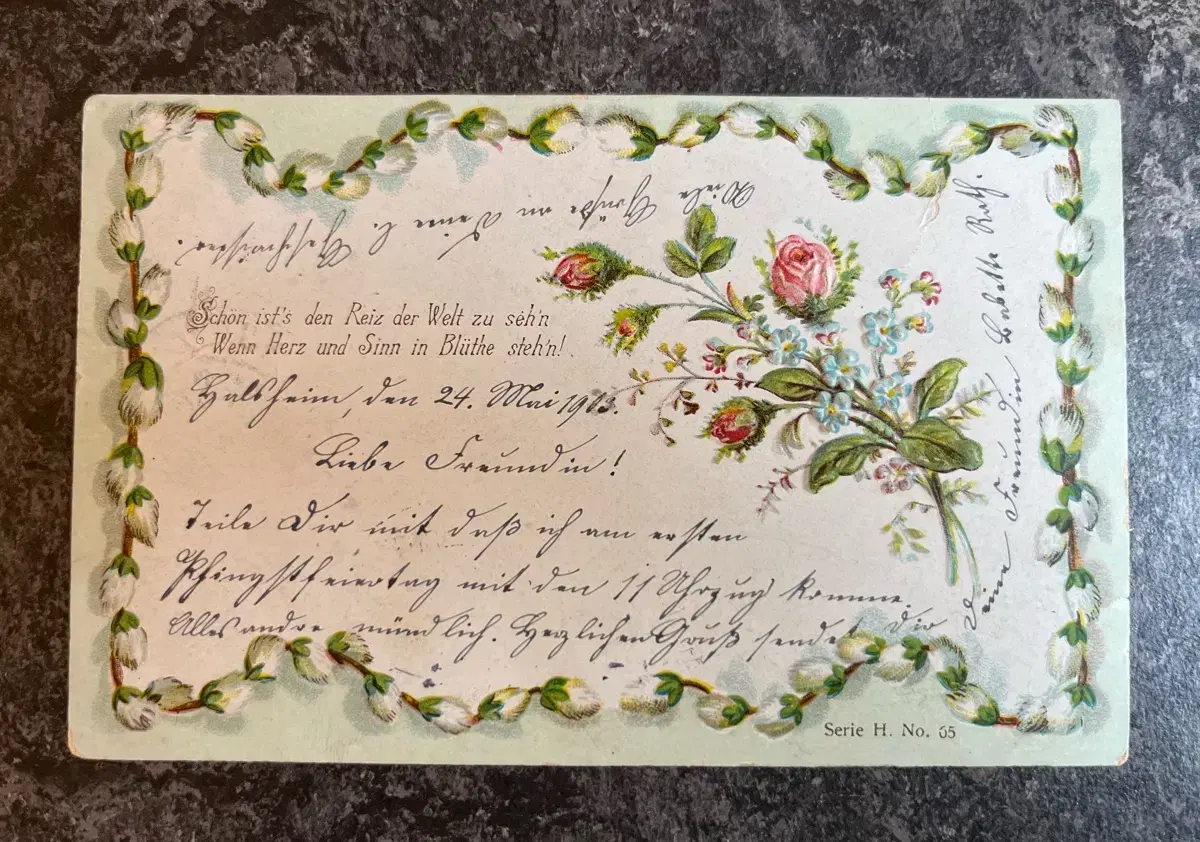 Viele Grüße an Deine l. Geschwister.
Schön ist's den Reiz der Welt zu seh'n
Wenn Herz und Sinn in Blüthe steh'n!
Halsheim, den 24. Mai 1903.
Liebe Freundin!
Teile Dir mit daß ich am ersten
Pfingstfeiertag mit den 11 Uhrzug komme.
Alles andre mündlich. Herzlichen Gruß sendet Dir
Deine Freundin Babette Roth.
Serie H. No. 65